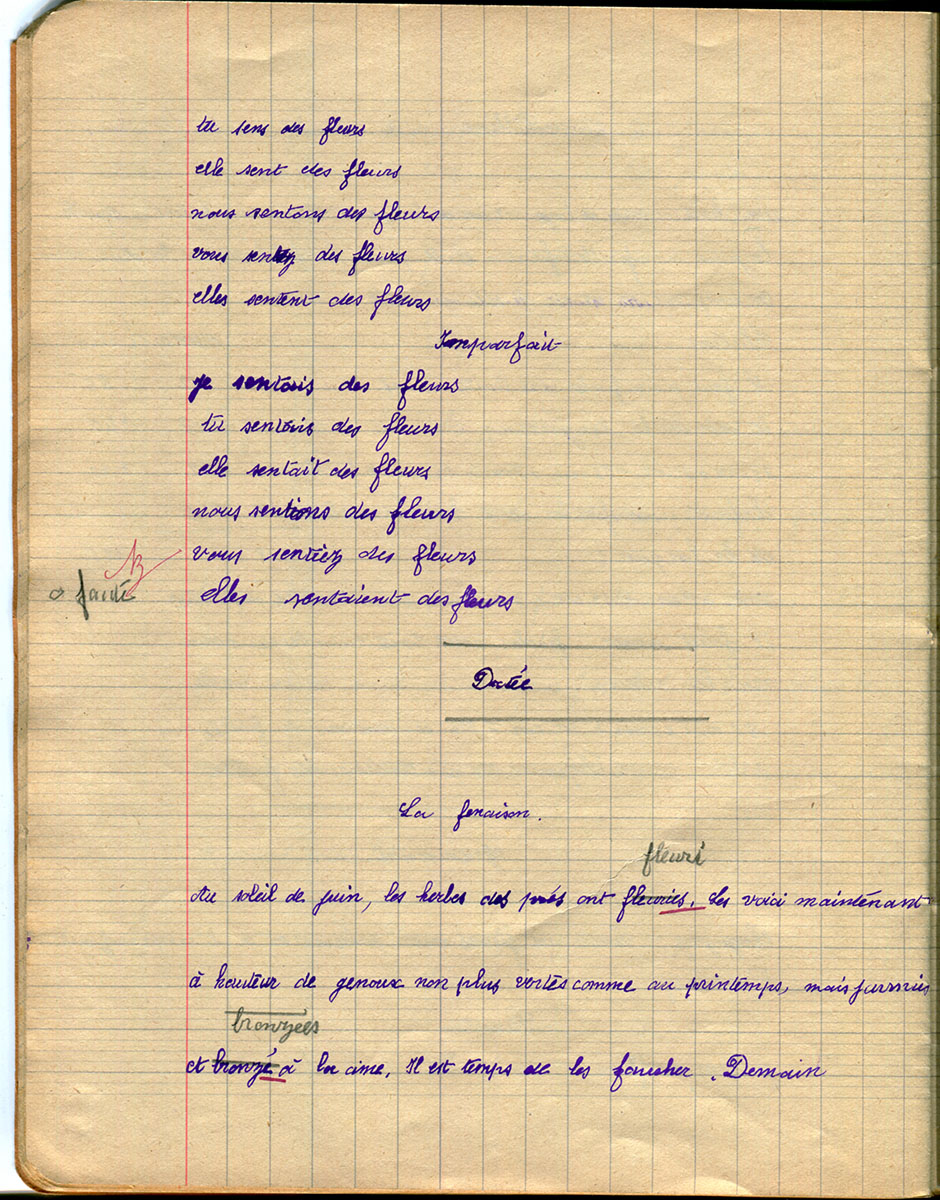 tu sens des fleurs
elle sent des fleurs
nous sentons des fleurs
vous sentez des fleurs
elles sentent des fleurs
Imparfait
je sentais des fleurs
tu sentais des fleurs
elle sentait des fleurs
nous sentions des fleurs
vous sentiez des fleurs
0 faute elles sentaient des fleurs
Dictée
La fenaison.
fleuri
Au soleil de juin, les herbes des prés ont fleuries. Les voici maintenant
à hauteur de genoux non plus vertes comme au printemps, mais jaunies
bronzees
et bronzé à la cime. Il est temps de les faucher. Demain